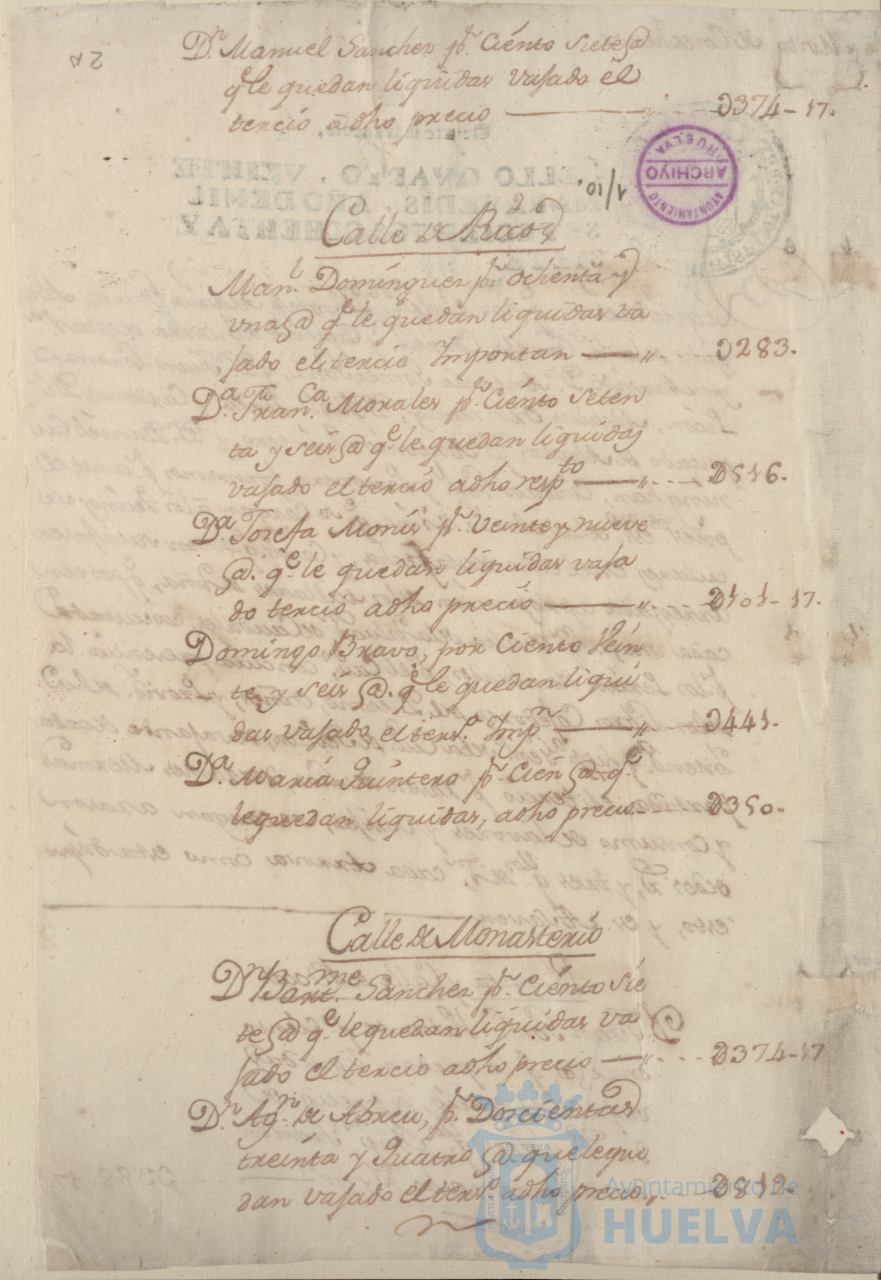 Dn. Manuel Sanchez pr. Ciento siete @
qe. le quedan liquidas vajado el
tercio a dho precio — " — D374-17.
AYUNTAMIENTO
ARCHIVO
HUELVA
1/10.
Calle de
Manl. Dominguez pr. ochenta y
una @ qe. le quedan liquidas va
jado el tercio Importan — " — D283.
Da. Franca. Morales pr. Ciento seten
ta y seis @ qe. le quedan liquidas
vajado el tercio a dho respto — " — D616.
Da. Josefa Monis pr. Veinte y nueve
@. qe. le quedan liquidas vaja
do tercio a dho precio — " — D101-17.
Domingo Bravo, por Ciento Vein
te, y seis @. qe. le quedan liqui
das vajado el terso. Impn — " — D441.
Da. Maria Quintero pr. Cien @ qe.
le quedan liquidas, a dho precio — D350.
Calle de Monasterio
Dn. Bartme. Sanchez pr. Ciento sie
te @ qe. le quedan liquidas va
jado el tercio a dho precio — " — D374-17
Dn. Agn. de Abreu, pr. Dorcientas
treinta y quatro @. que le que
dan vajado el terso. a dho precio, — D819.
Ayuntamiento de
HUELVA